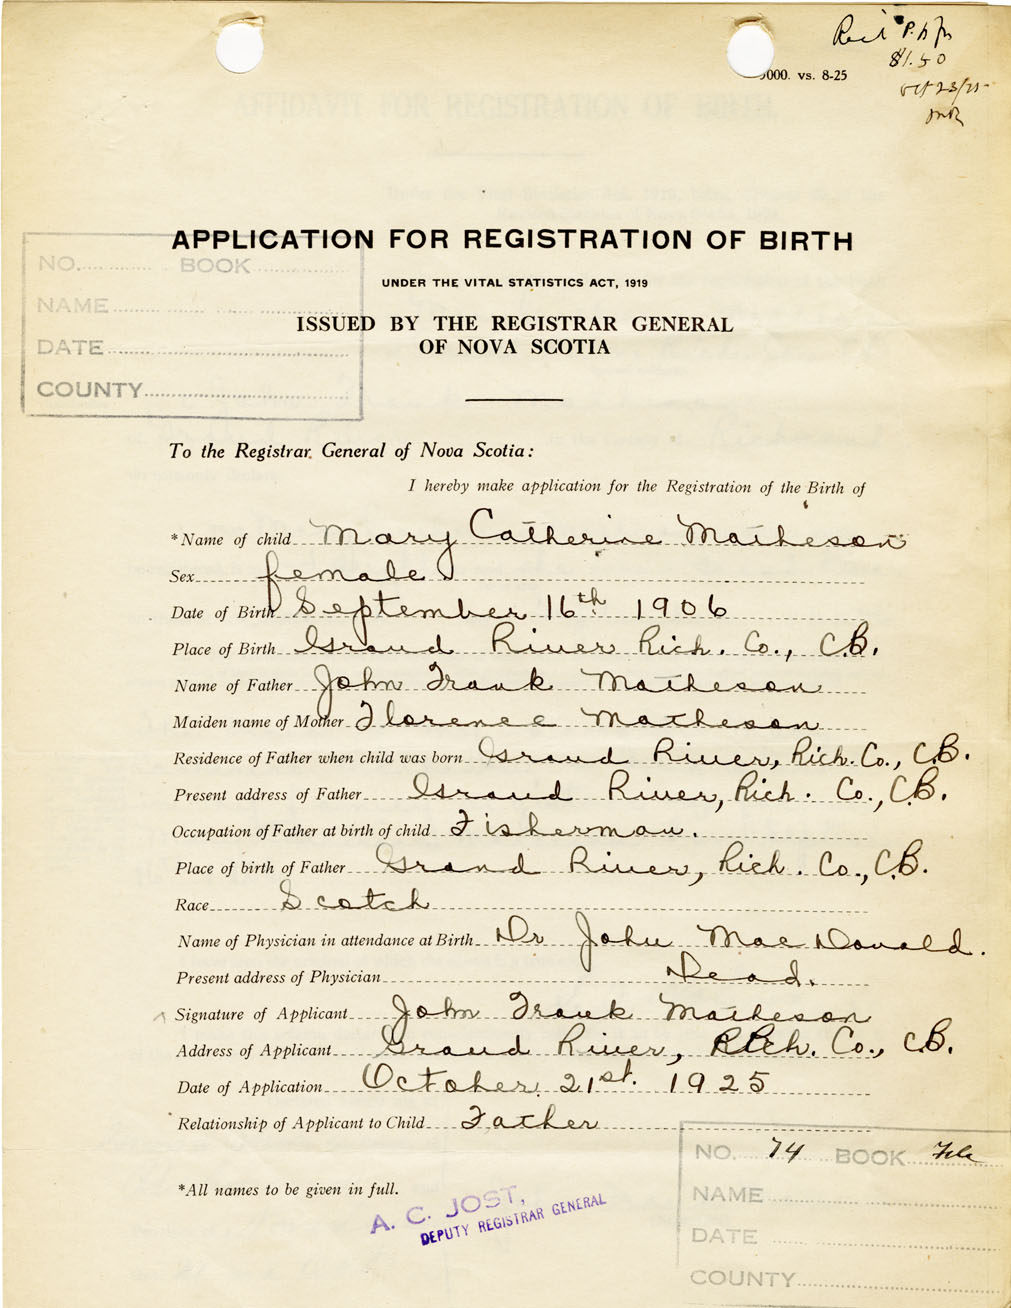 Rec'd P.N.
$1.50
Oct 23/25
000. vs. 8-25
APPLICATION FOR REGISTRATION OF BIRTH
UNDER THE VITAL STATISTICS ACT, 1919
ISSUED BY THE REGISTRAR GENERAL
OF NOVA SCOTIA
NO. BOOK
NAME
DATE
COUNTY
To the Registrar General of Nova Scotia:
I hereby make application for the Registration of the Birth of
*Name of child Mary Catherine Matheson
Sex female
Date of Birth September 16th 1906
Place of Birth Grand River Rich. Co., C.B.
Name of Father John Frank Matheson
Maiden name of Mother Florence Matheson
Residence of Father when child was born Grand River, Rich. Co., C.B.
Present address of Father Grand River, Rich. Co., C.B.
Occupation of Father at birth of child Fisherman.
Place of birth of Father Grand River, Rich. Co., C.B.
Race Scotch
Name of Physician in attendance at Birth Dr John MacDonald.
Present address of Physician Dead.
Signature of Applicant John Frank Matheson
Address of Applicant Grand River, Rich. Co., C.B.
Date of Application October 21st. 1925
Relationship of Applicant to Child Father
*All names to be given in full.
A. C. JOST,
DEPUTY REGISTRAR GENERAL
NO. 74 BOOK
NAME
DATE
COUNTY